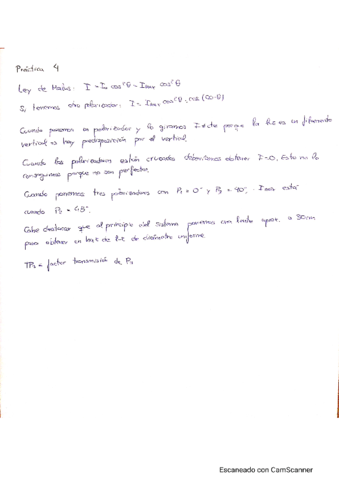 Práctica 4
Ley de Malus: I = I₀ cos²θ = Imax cos²θ.
Si tenemos otro polarizador: I = Imax cos²θ · cos (90-θ)
Cuando ponemos un polarizador y lo giramos I porque la luz es un filamento
vertical es hay predisposición por el vertical.
Cuando los polarizadores están cruzados deberíamos obtener I=0. Esto no lo
conseguimos porque no son perfectos.
Cuando ponemos tres polarizadores con P₁ = 0° y P₃ = 90°, Imax está
cuando P₂ = 45°.
Cabe destacar que al principio del sistema ponemos una lente aprox. a 30cm
para obtener un haz de luz de diámetro uniforme.
TP₁ = factor transmisión de P₁
Escaneado con CamScanner